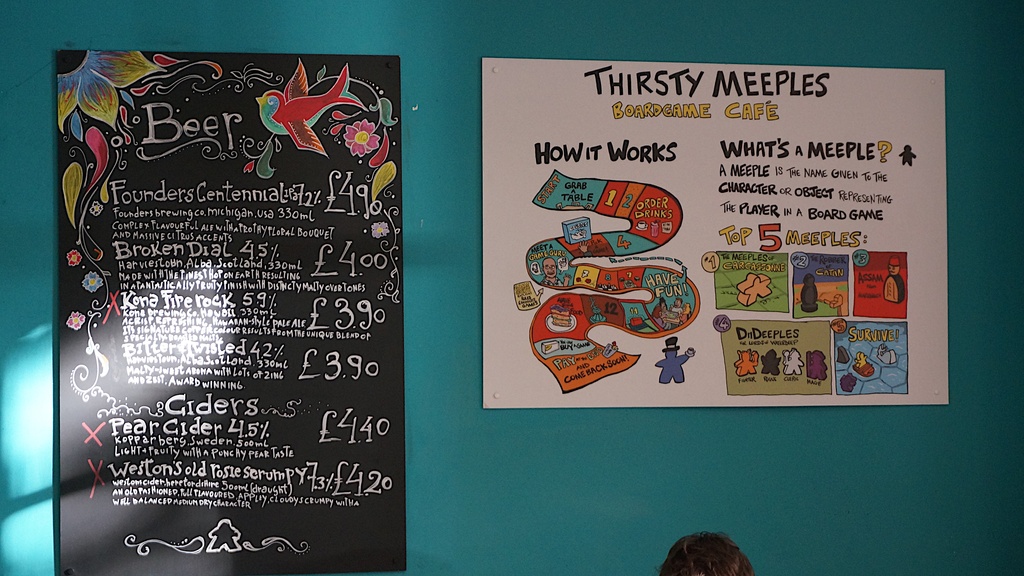 Beer
Founders Centennial 7.2% £4.90
Founders brewing co. Michigan, USA 330ml
Complex flavourful ale with a frothy floral bouquet
and massive citrus accents
Broken Dial 4.5% £4.00
Harviestoun, Alba, Scotland, 330ml
Made with the finest hop on earth resulting
in a tantastically fruity finish with distinctly malty overtones
X Kona Fire rock 5.9% £3.90
330ml
Hawaiian-style pale ale
results from the unique blend of
Bitter & Twisted 4.2% £3.90
Scotland, 330ml
Malty-sweet aroma with lots of zing
and zest, award winning.
Ciders
X Pear Cider 4.5% £4.40
Kopparberg, Sweden, 500ml
Light + fruity with a punchy pear taste
X Weston's old rosie scrumpy 7.3% £4.20
weston cider, herefordshire 500ml (draught)
an old fashioned, full flavoured, cloudy scrumpy with a
well balanced medium dry character
THIRSTY MEEPLES
BOARDGAME CAFÉ
HOW IT WORKS
START
GRAB
A
TABLE
1
2
ORDER
DRINKS
4
MEET A
GAME GURU
7
HAVE
FUN!
12
BUY A GAME
PAY
AND
COME BACK SOON!
WHAT'S A MEEPLE?
A MEEPLE IS THE NAME GIVEN TO THE
CHARACTER OR OBJECT REPRESENTING
THE PLAYER IN A BOARD GAME
TOP 5 MEEPLES:
#1 THE MEEPLES OF
CARCASSONNE
#2 THE ROBBER
CATAN
#3
ASSAM
#4
DnDEEPLES
LORDS OF WATERDEEP
CLERIC
MAGE
#5
SURVIVE!